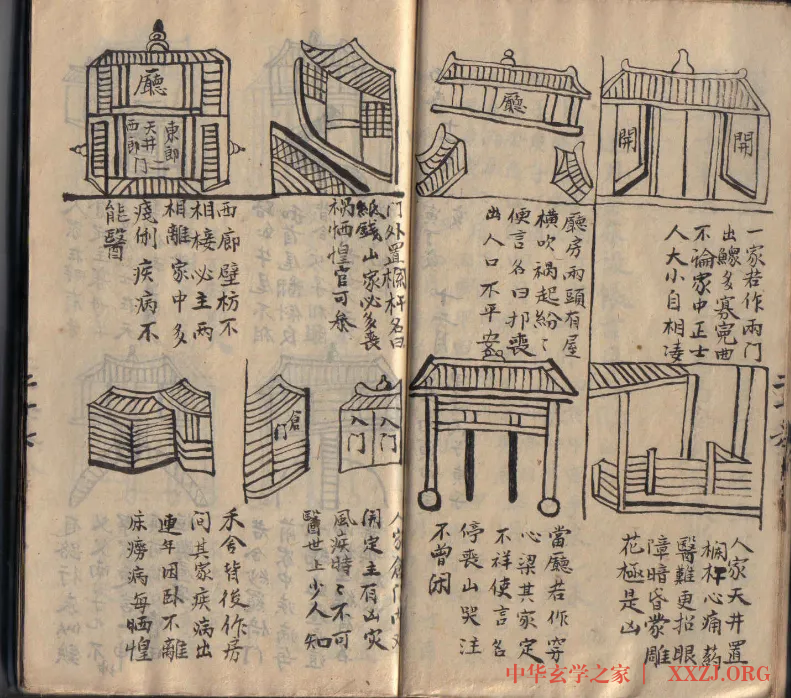 開
開
一家若作兩門
出鰥多寡寃曲
不論家中正士
人大小自相凌
廳
廳房兩頭有屋
横吹禍起紛〻
便言名曰喪
出人口不平安
人家天井置
欄杆心痛药
醫難更招眼
障暗昏蒙雕
花極是凶
當廳若作穿
心梁其家定
不祥使言名
停喪山哭注
不曾闲
门外置欄杆名曰
紙錢山家必多喪
禍恓惶官可參
廳
東郎
天井
西郎
门
西廊壁枋不
相接必主两
相離家中多
疾病不
能醫
入门
入门
倉门
人家倉门
開定主有凶灾
風疾時〻不可
醫世上少人知
禾舍背後作房
间其家疾病出
連年因卧不離
床癆病每恓惶
中华玄学之家 XXZJ.ORG